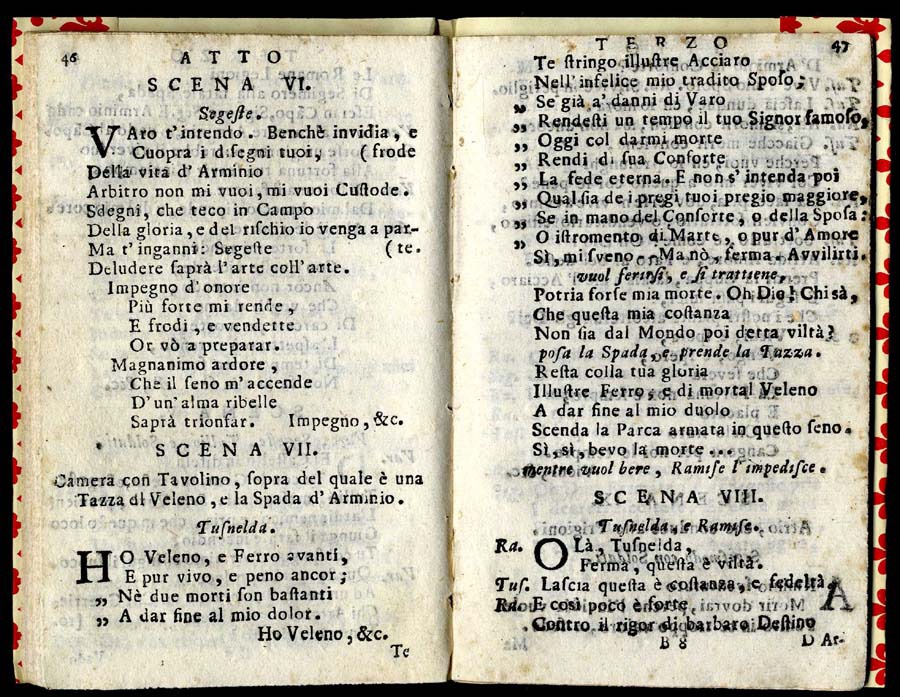 46
ATTO
SCENA VI.
Segeste.
VAro t'intendo. Benchè invidia, e
Cuopra i disegni tuoi, (frode
Della vita d'Arminio
Arbitro non mi vuoi, mi vuoi Custode.
Sdegni, che teco in Campo
Della gloria, e del rischio io venga a par-
Ma t'inganni: Segeste (te.
Deludere saprà l'arte coll'arte.
Impegno d'onore
Più forte mi rende,
E frodi, e vendette
Or vò a preparar.
Magnanimo ardore,
Che il seno m'accende
D'un'alma ribelle
Saprà trionfar. Impegno, &c.
SCENA VII.
Camera con Tavolino, sopra del quale è una
Tazza di Veleno, e la Spada d'Arminio.
Tusnelda.
HO Veleno, e Ferro avanti,
E pur vivo, e peno ancor;
„ Nè due morti son bastanti
„ A dar fine al mio dolor.
Ho Veleno, &c.
Te
TERZO
47
Te stringo illustre Acciaro
Nell'infelice mio tradito Sposo;
„ Se già a' danni di Varo
„ Rendesti un tempo il tuo Signor famoso,
„ Oggi col darmi morte
„ Rendi di sua Consorte
„ La fede eterna. E non s'intenda poi
„ Qual sia de i pregi tuoi pregio maggiore,
„ Se in mano del Consorte, o della Sposa:
„ O istromento di Marte, o pur d'Amore
Sì, mi sveno. Ma nò, ferma. Avvilirti.
vuol ferirsi, e si trattiene,
Potria forse mia morte. Oh Dio! Chi sà,
Che questa mia costanza
Non sia dal Mondo poi detta viltà?
posa la Spada, e prende la Tazza.
Resta colla tua gloria
Illustre Ferro, e di mortal Veleno
A dar fine al mio duolo
Scenda la Parca armata in questo seno.
Sì, sì, bevo la morte...
mentre vuol bere, Ramise l'impedisce.
SCENA VIII.
Tusnelda, e Ramise.
Ra. OLà, Tusnelda,
Ferma, questa è viltà.
Tus. Lascia questa è costanza, è fedeltà.
Ra. E così poco è forte
Contro il rigor di barbaro Destino
B 8 D'Ar-